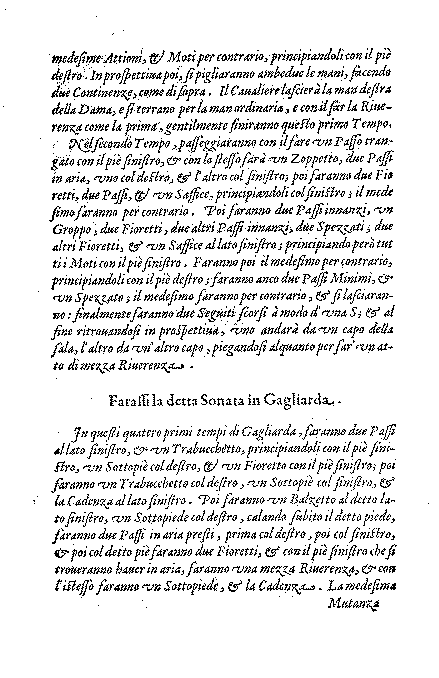 medesime Attioni, & Moti per contrario, principiandoli con il piè
destro. In prospettiua poi, si pigliaranno ambedue le mani, facendo
due Continenze, come di sopra. Il Caualiere lascierà la man destra
della Dama, e si terrano per la man ordinaria, e con il far la Riue-
renza come la prima, gentilmente finiranno questo primo Tempo.
Nel secondo Tempo, passeggiaranno con il fare vn Passo tran-
gato con il piè sinistro, & con lo stesso farà vn Zoppetto, due Passi
in aria, vno col destro, & l'altro col sinistro; poi faranno due Fio
retti, due Passi, & vn Saffice, principiandoli col sinistro; il mede
simo faranno per contrario. Poi faranno due Passi innanzi, vn
Groppo, due Fioretti, due altri Passi innanzi, due Spezzati; due
altri Fioretti, & vn Saffice al lato sinistro; principiando però tut
ti i Moti con il piè sinistro. Faranno poi il medesimo per contrario,
principiandoli con il piè destro; faranno anco due Passi Minimi, &
vn Spezzato; il medesimo faranno per contrario, & si lasciaran-
no: finalmente faranno due Seguiti scorsi à modo d'vna S; & al
fine ritrouandosi in prospettiua, vno andarà da vn capo della
sala, l'altro da vn'altro capo, piegandosi alquanto per far'vn at-
to di mezza Riuerenza.
Farassi la detta Sonata in Gagliarda.
In questi quatero primi tempi di Gagliarda, faranno due Passi
al lato sinistro, vn Trabucchetto, principiandoli con il piè sini-
stro, vn Sottopiè col destro, & vn Fioretto con il piè sinistro; poi
faranno vn Trabucchetto col destro, vn Sottopiè col sinistro, &
la Cadenza al lato sinistro. Poi faranno vn Balzetto al detto la-
to sinistro, vn Sottopiede col destro, calando subito il detto piede,
faranno due Passi in aria presti, prima col destro, poi col sinistro,
& poi col detto piè faranno due Fioretti, & con il piè sinistro che si
troueranno hauer in aria, faranno vna mezza Riuerenza, & con
l'istesso faranno vn Sottopiede, & la Cadenza. La medesima
Mutanza